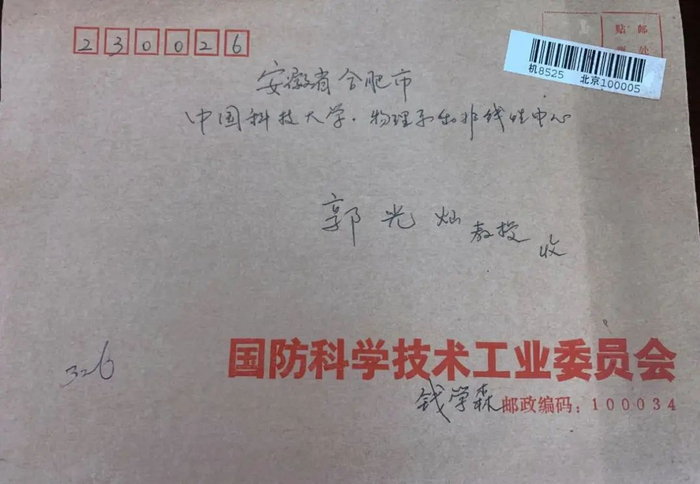 230026
贴 邮
票 处
机8525 北京100005
安徽省合肥市
中国科技大学·物理系非线性中心
郭光灿教授 收
326
国防科学技术工业委员会
钱学森 邮政编码：100034